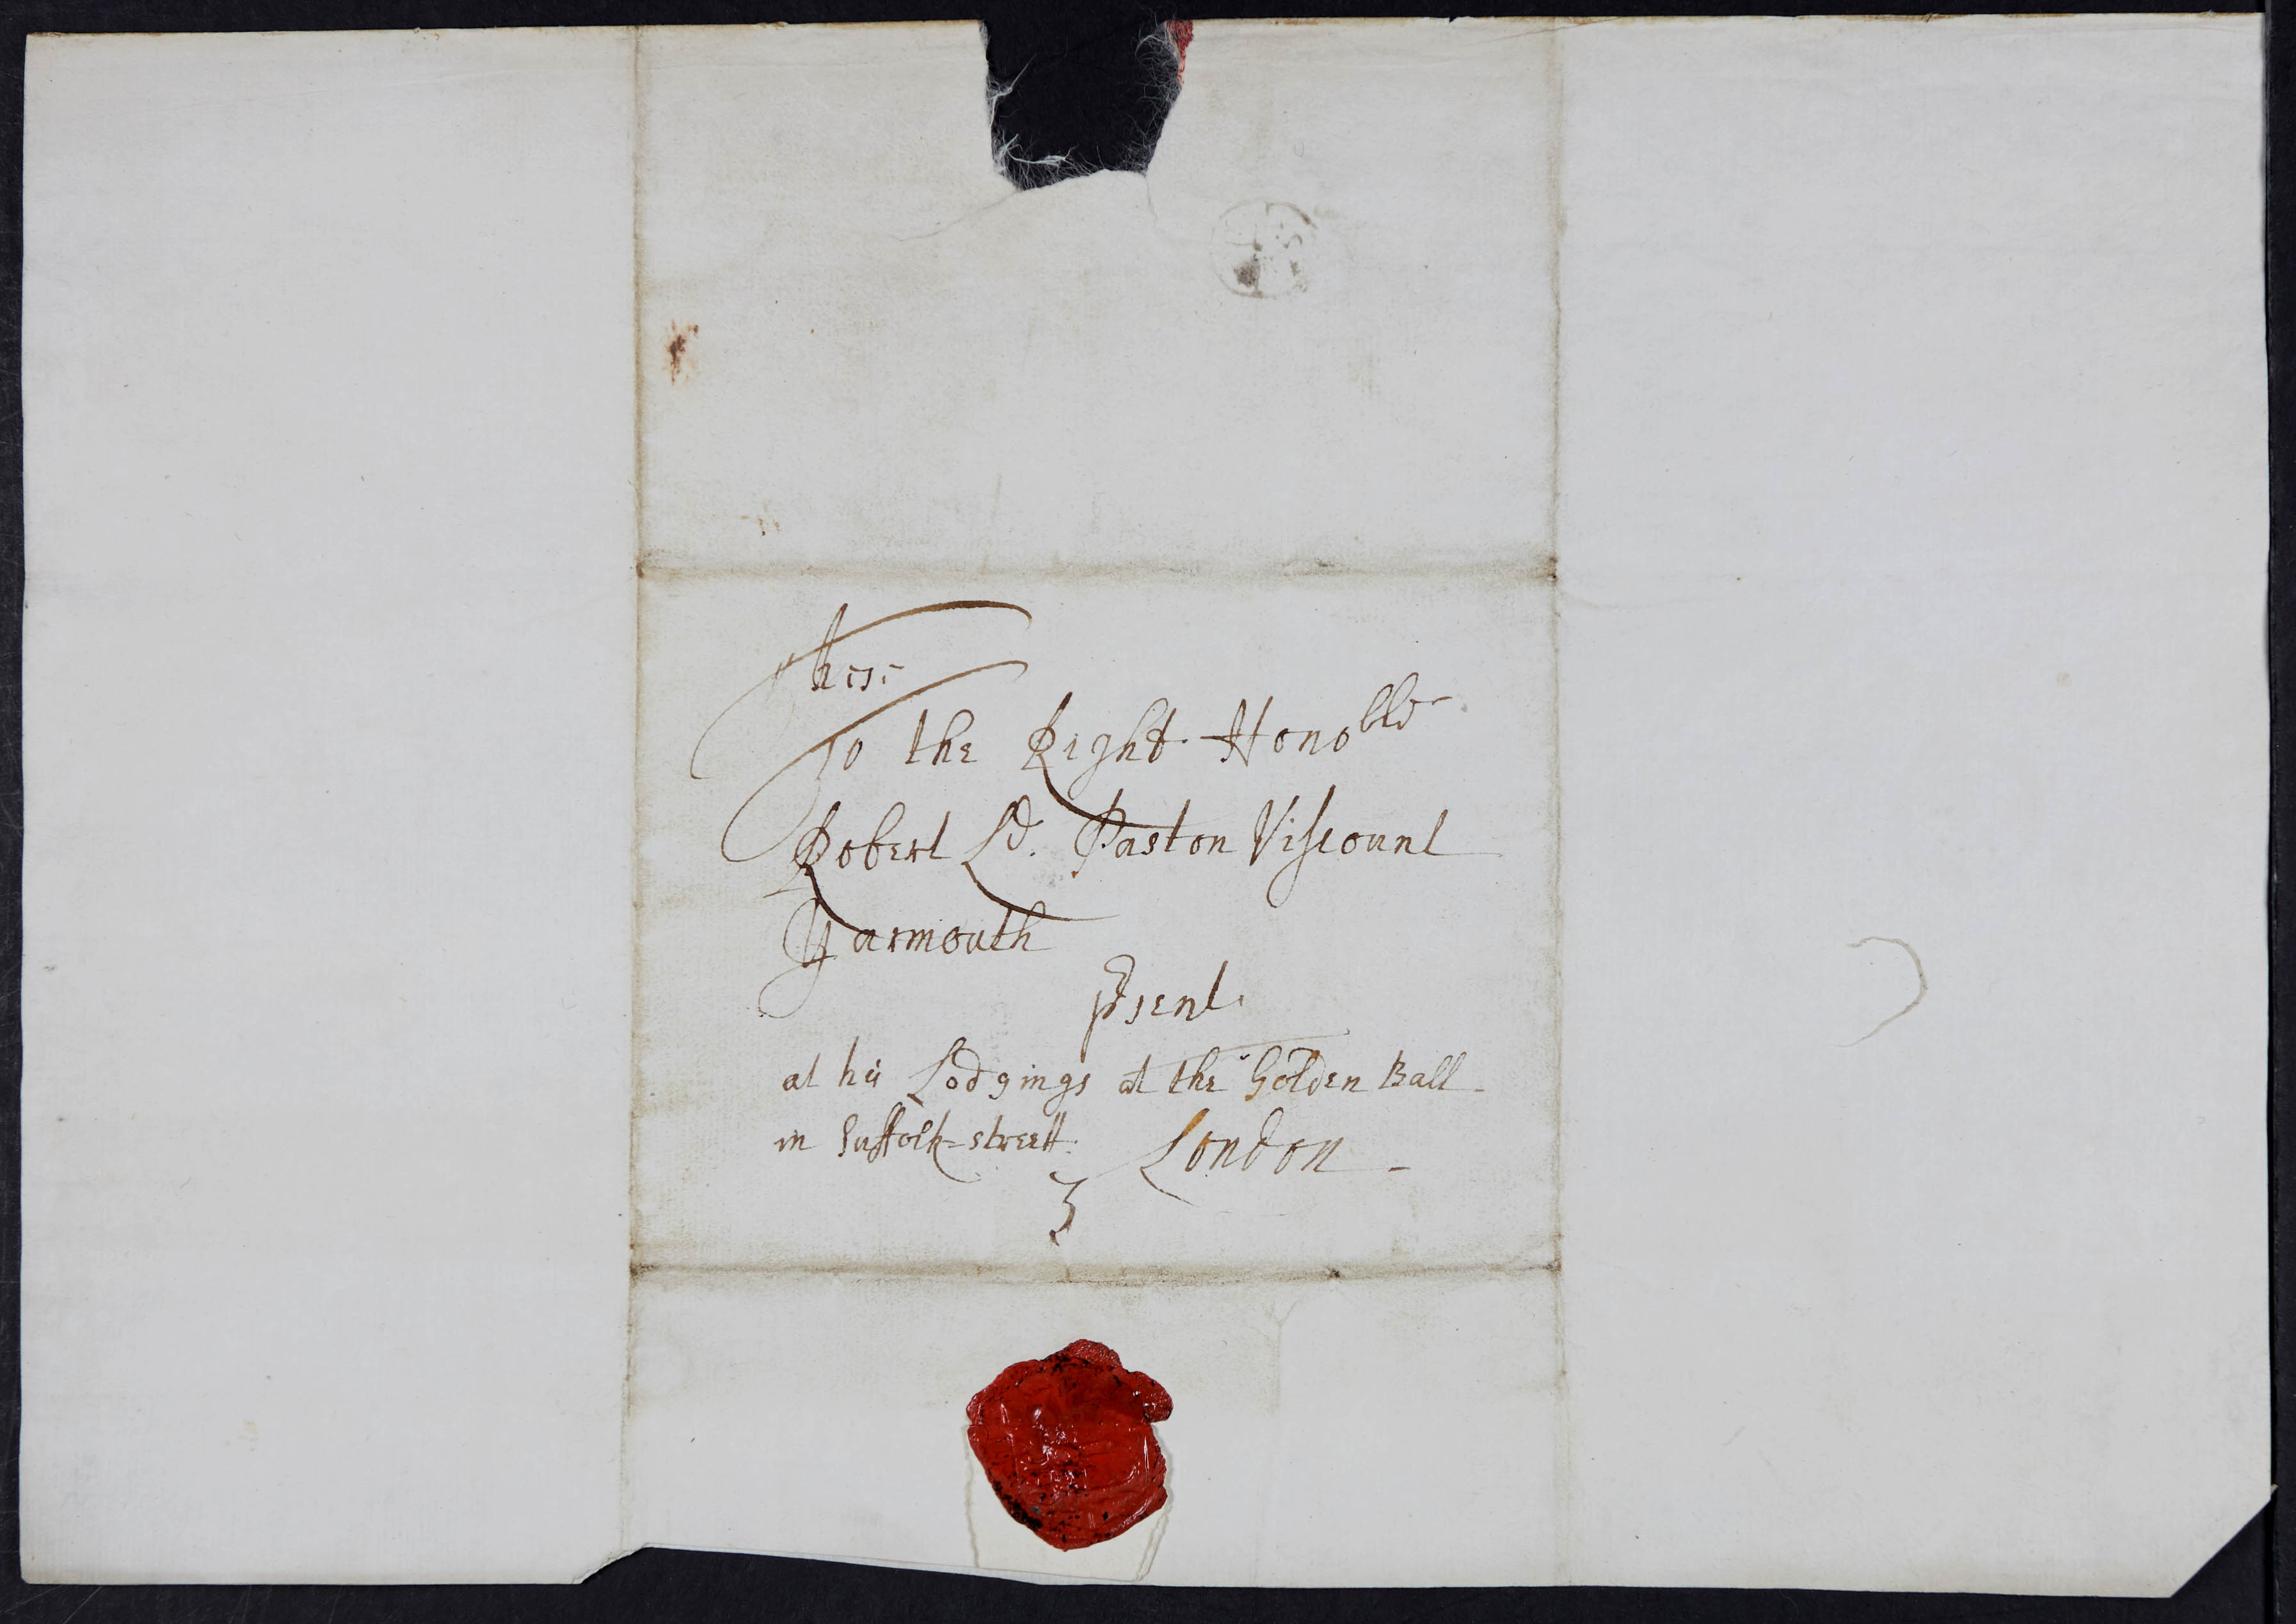 These
To the Right Honoble
Robert Ld. Paston Viscount
Yarmouth
psent.
at his Lodgings at the Golden Ball
in Suffolk=streett: London
3